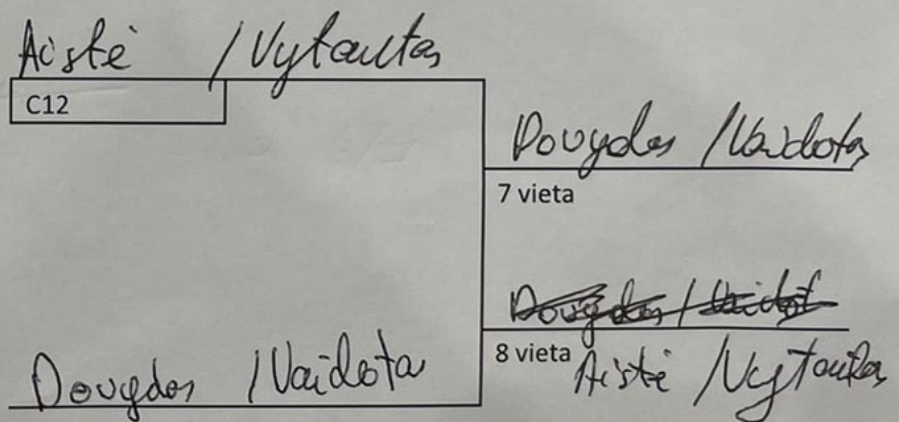 Aistė / Vytautas
C12
Dougdas / Vaidotas
7 vieta
Dougdas / Vaidot
8 vieta
Aistė / Vytautas
Dougdas / Vaidota